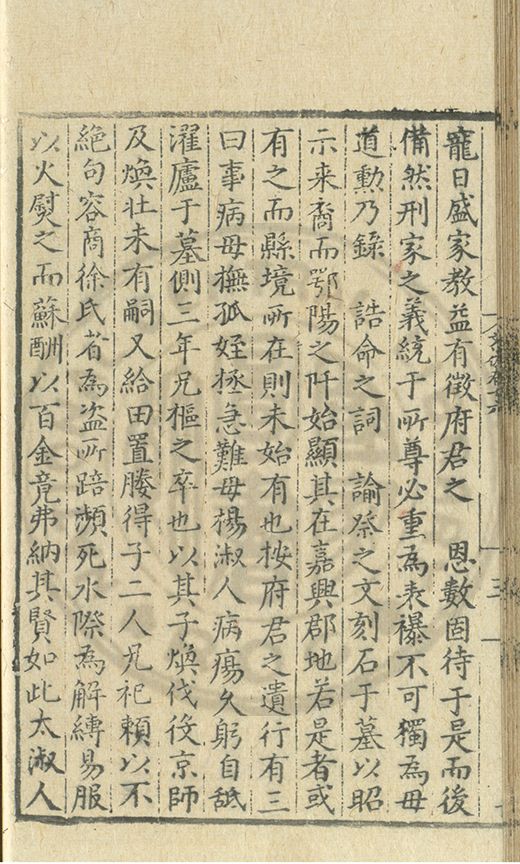 寵日盛家教益有徵府君之　恩數固待于是而後
備然刑家之義統于所尊必重為表襮不可獨為毋
道勲乃錄　誥命之詞　諭祭之文刻石于墓以昭
示来裔而鄂陽之阡始顯其在嘉興郡地若是者或
有之而縣境所在則未始有也按府君之遺行有三
曰事病母撫孤姪拯急難母楊淑人病瘍久躬自舐
濯廬于墓側三年兄樞之卒也以其子煥伐役京師
及煥壯未有嗣又給田置媵得子二人兄祀頼以不
絶句容商徐氏者為盗所踣瀕死水際為解縛易服
以火熨之而蘇酬以百金竟弗納其賢如此太淑人